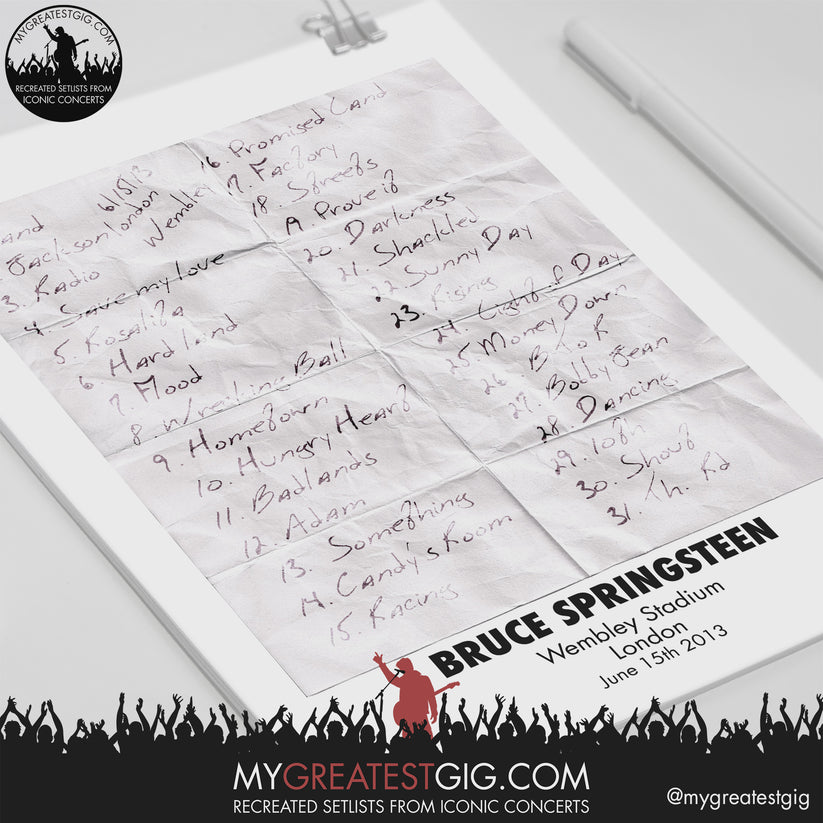 MYGREATESTGIG.COM
RECREATED SETLISTS FROM
ICONIC CONCERTS
6/15/13
and
Jackson London
3. Radio Wembley
4. Save my Love
5. Rosalita
6. Hard land
7. Mood
8. Wrecking Ball
9. Hometown
10. Hungry Heart
11. Badlands
12. Adam
13. Something
14. Candy's Room
15. Racing
16. Promised Land
17. Factory
18. Streets
19. Prove it
20. Darkness
21. Shackled
22. Sunny Day
23. Rising
24. Light of Day
25. Money Down
26. B to R
27. Bobby Jean
28. Dancing
29. 10th
30. Shout
31. Th. Rd
BRUCE SPRINGSTEEN
Wembley Stadium
London
June 15th 2013
MYGREATESTGIG.COM
RECREATED SETLISTS FROM ICONIC CONCERTS
@mygreatestgig